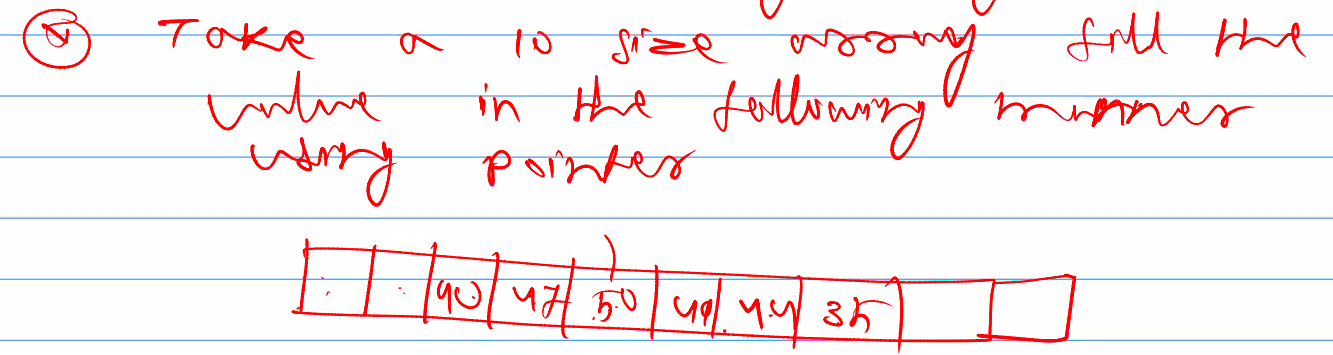 Ⓥ Take a 10 size array fill the
value in the following manner
using pointer
90 47 50 49 44 35